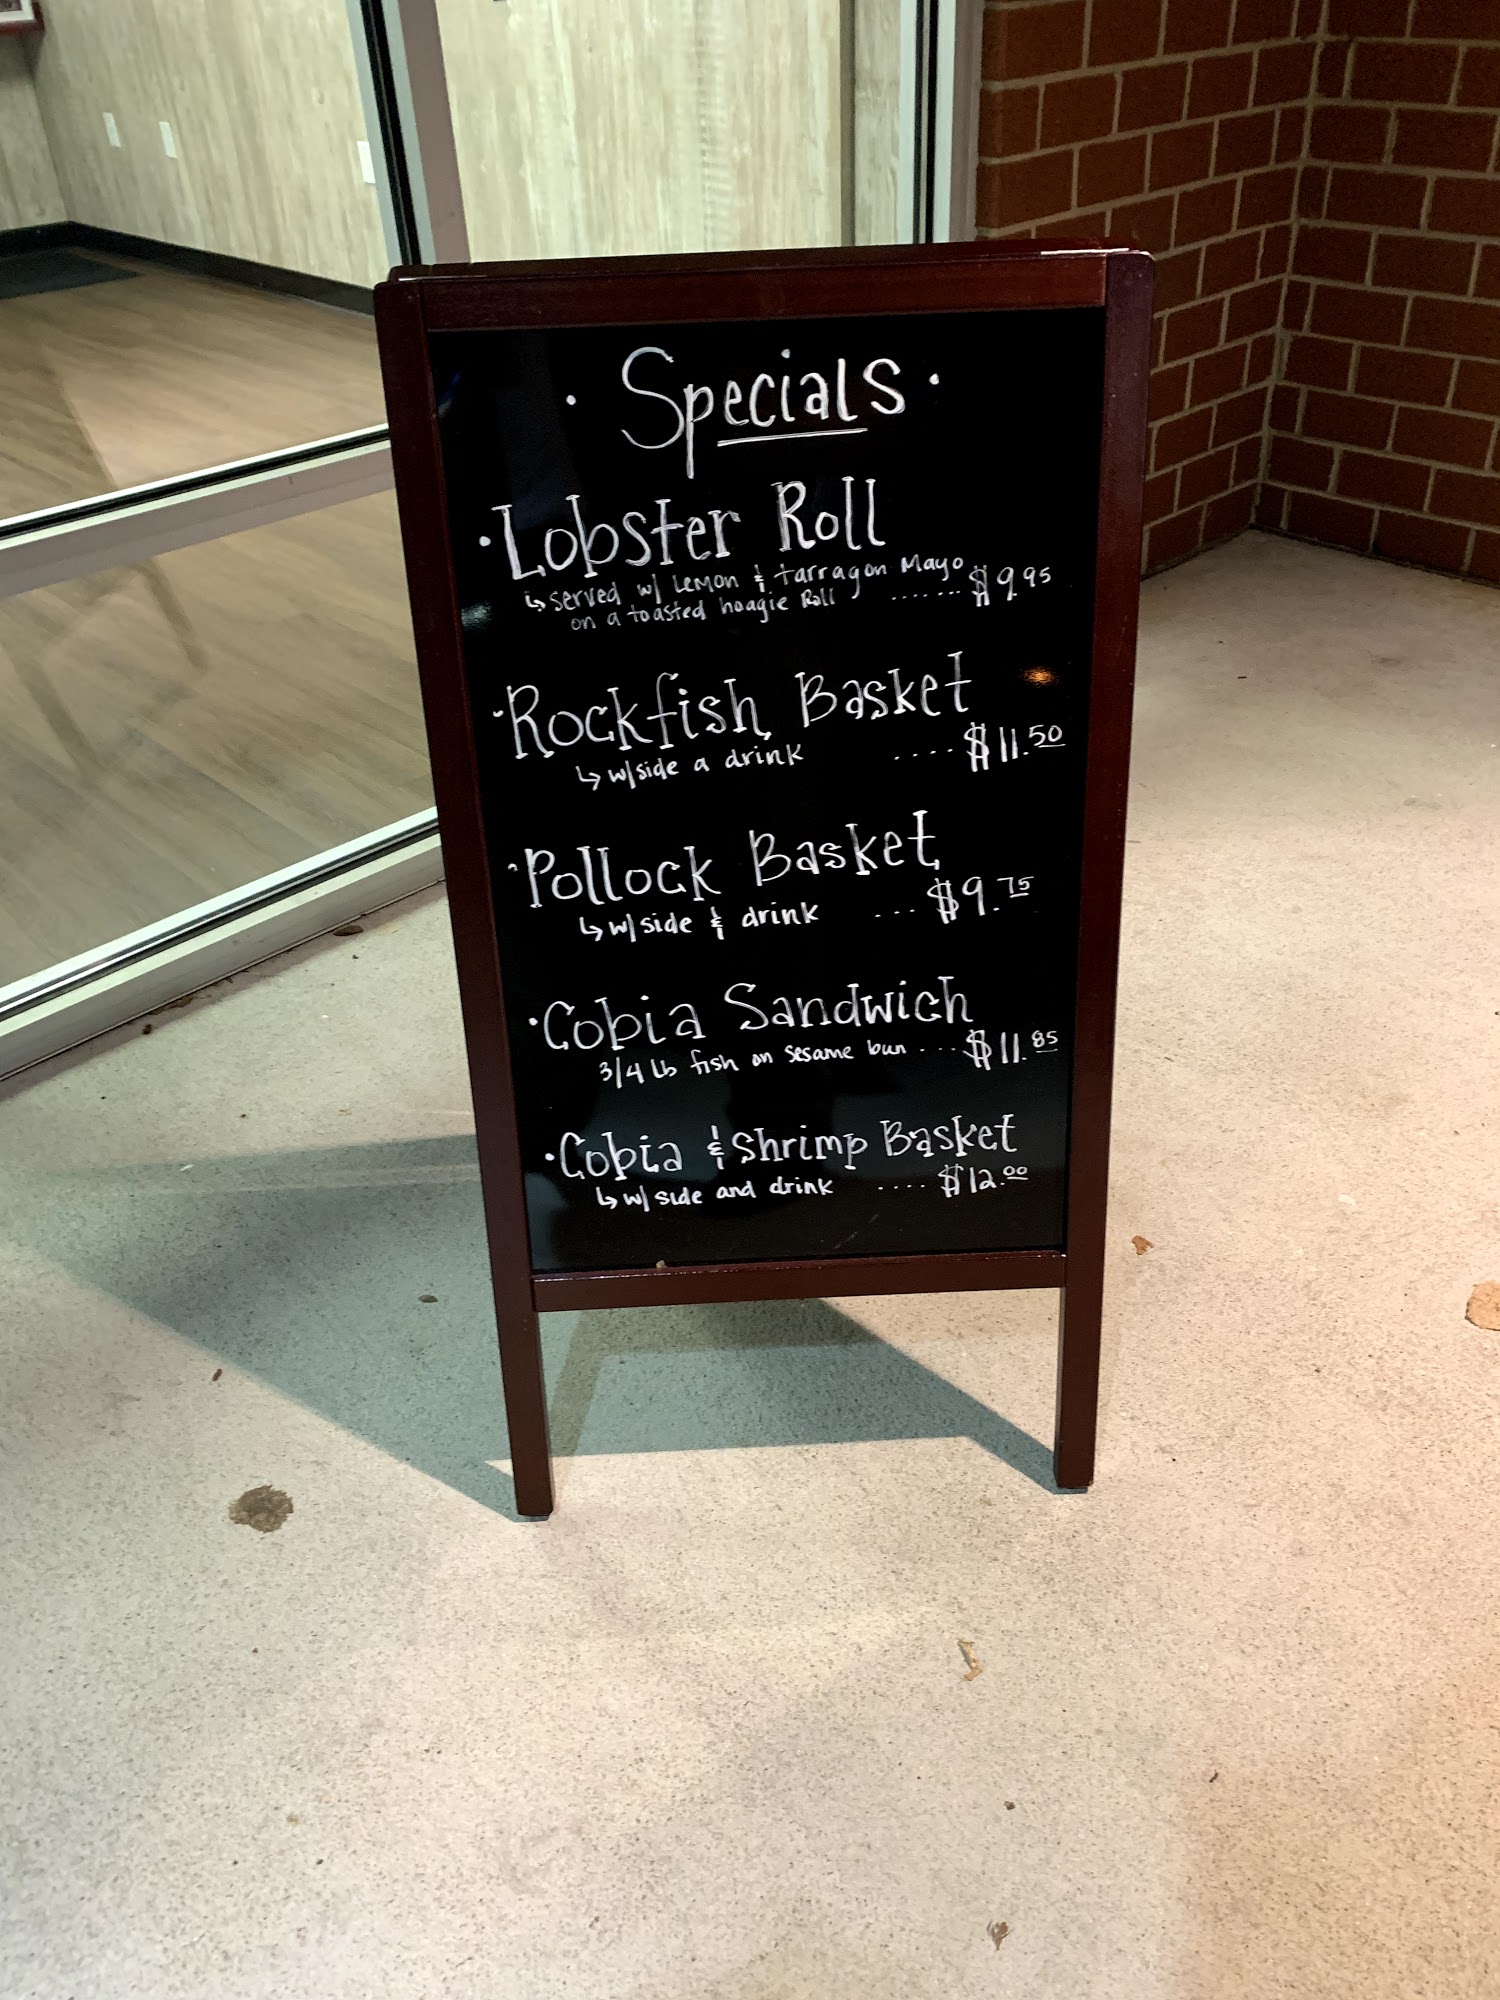 · Specials ·
· Lobster Roll
↳ served w/ Lemon & tarragon Mayo
on a toasted hoagie Roll ....... $9.95
· Rockfish Basket
↳ w/ side a drink .... $11.50
· Pollock Basket
↳ w/ side & drink ... $9.75
· Cobia Sandwich
3/4 lb fish on sesame bun ... $11.85
· Cobia & Shrimp Basket
↳ w/ side and drink .... $12.00